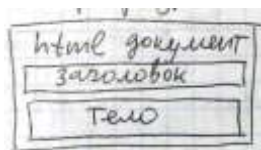 html документ
заголовок
тело